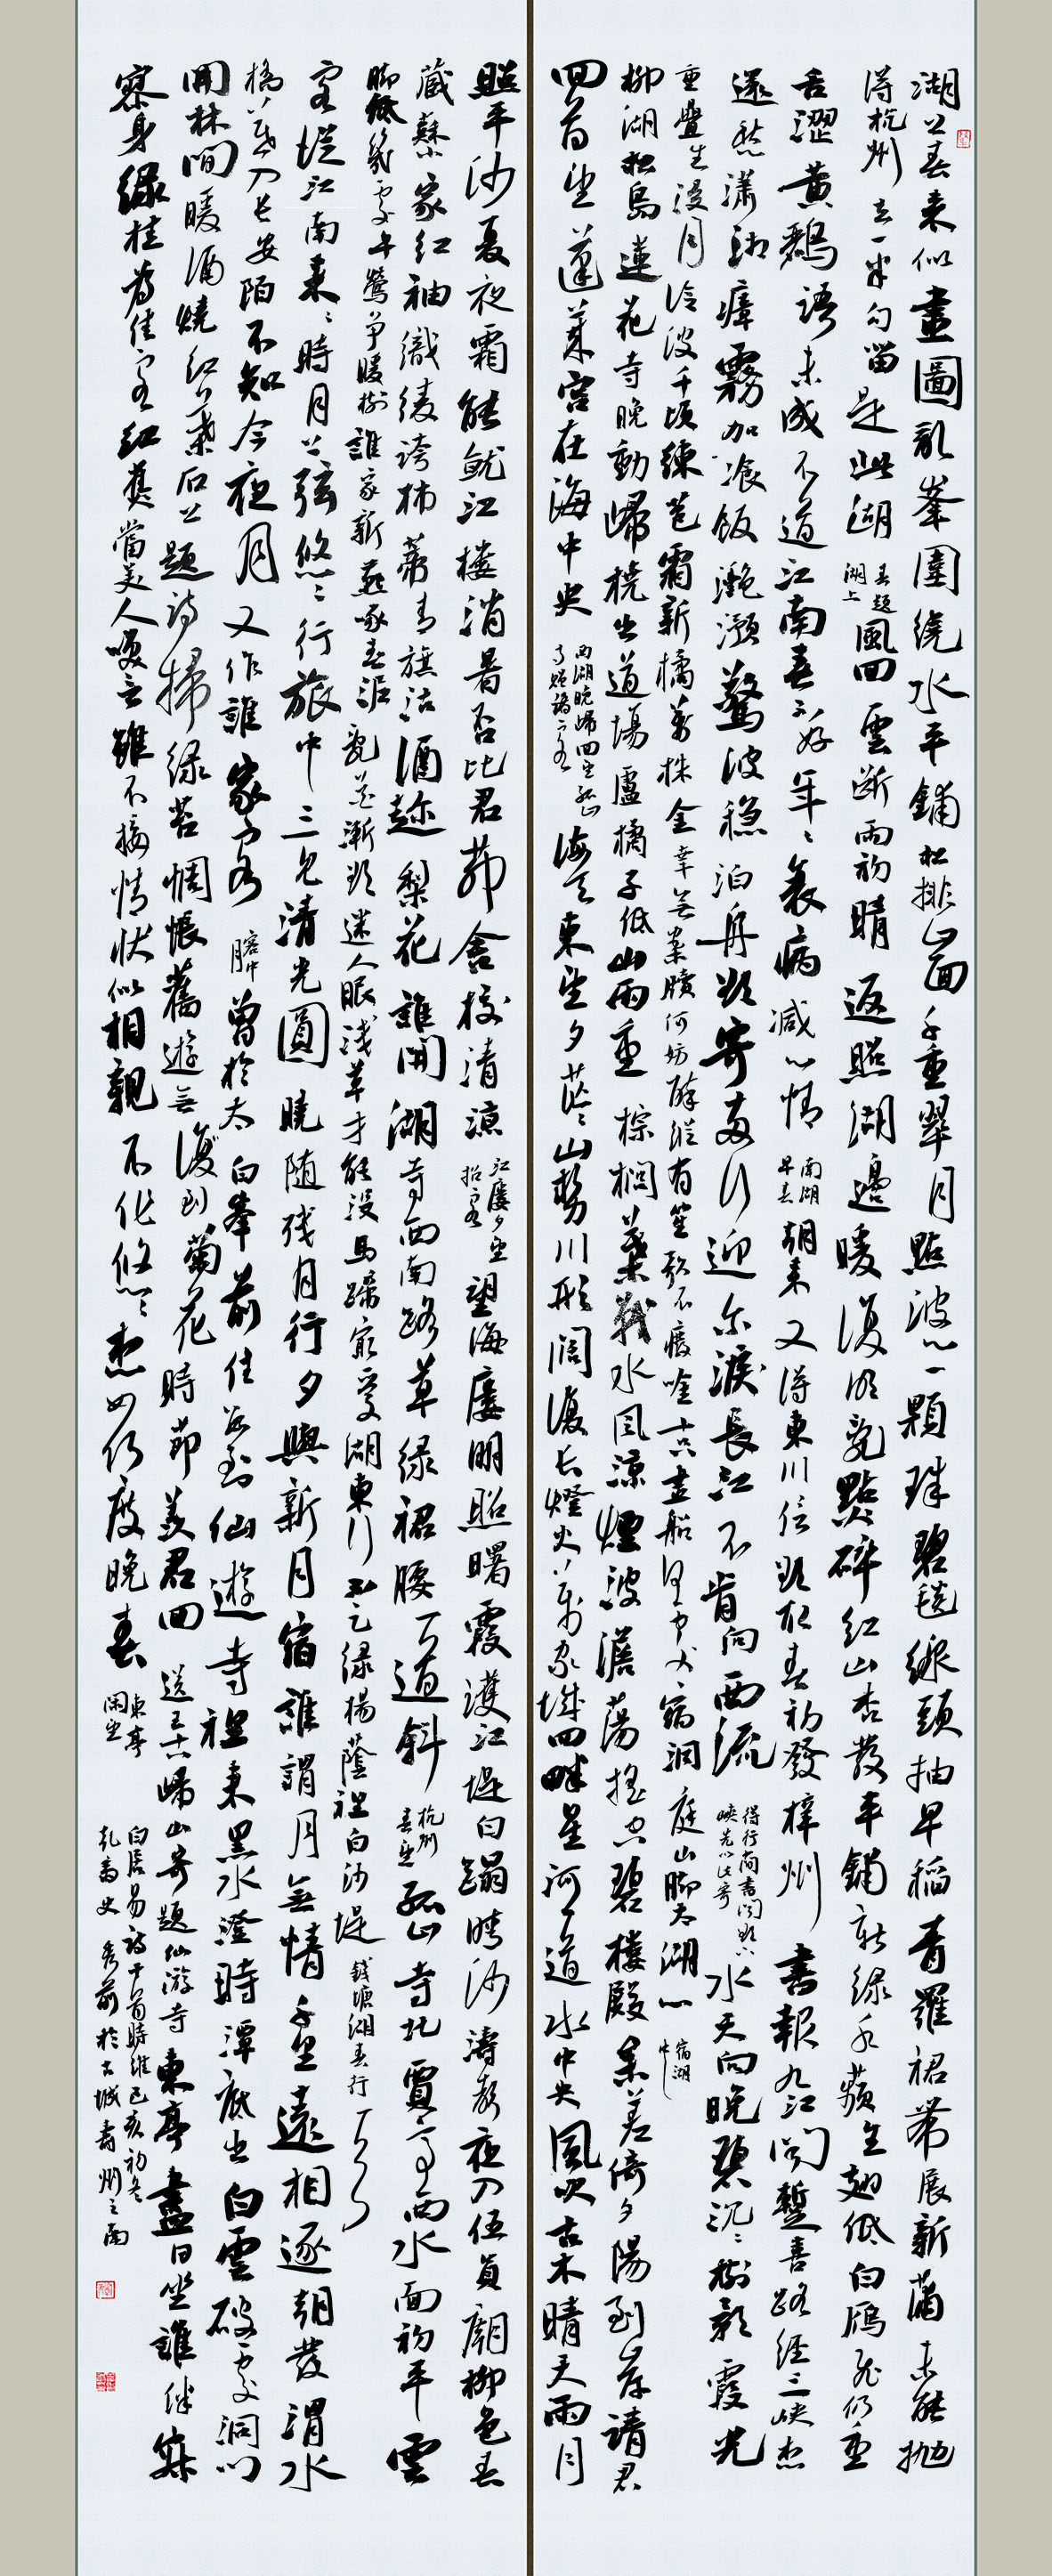 湖上春來似畫圖亂峯圍繞水平鋪松排山面千重翠月點波心一顆珠碧毯線頭抽早稻青羅裙帶展新蒲未能拋
得杭州去一半勾留是此湖 春題湖上 風回雲斷雨初晴返照湖邊暖復明亂點碎紅山杏發平鋪新綠水蘋生翅低白雁飛仍重
舌澀黃鸝語未成不道江南春不好年ミ衰病減心情 南湖早春 朝來又得東川信欲取春初發梓州書報九江聞暫喜路經三峽想
還愁瀟湘瘴霧加飡飯灧澦驚波穩泊舟欲寄兩行迎尔淚長江不肯向西流 得行簡書聞欲下峽先以此寄 水天向晚碧沉ミ樹影霞光
重疊生浸月冷波千頃練苞霜新橘萬株金幸無案牘何妨醉縱有笙歌不廢吟十隻畫船何處宿洞庭山腳太湖心 宿湖中
柳湖松島蓮花寺晚動歸橈出道場盧橘子低山雨重棕櫚葉戰水風涼煙波澹蕩搖空碧樓殿參差倚夕陽到岸請君
回首望蓬萊宮在海中央 西湖晚歸回望孤山寺贈諸客 海天東望夕茫ミ山勢川形闊復長燈火萬家城四畔星河一道水中央風吹古木晴天雨月
照平沙夏夜霜能就江樓消暑否比君茆舍校清涼 江樓夕望招客 望海樓明照曙霞護江堤白蹋晴沙濤聲夜入伍員廟柳色春
藏蘇小家紅袖織綾誇柿蒂青旗沽酒趁梨花誰開湖寺西南路草綠裙腰一道斜 杭州春望 孤山寺北賈亭西水面初平雲
腳低幾處早鶯爭暖樹誰家新燕啄春泥亂花漸欲迷人眼淺草才能沒馬蹄最愛湖東行不足綠楊蔭裡白沙堤 錢塘湖春行
客從江南來ミ時月上弦悠ミ行旅中三見清光圓曉隨殘月行夕與新月宿誰謂月無情千里遠相逐朝發渭水
橋暮入長安陌不知今夜月又作誰家客 客中月 曾於太白峯前住數到仙遊寺裡來黑水澄時潭底出白雲破處洞門
開林間暖酒燒紅葉石上題詩掃綠苔惆悵舊遊無復到菊花時節羨君回 送王十八歸山寄題仙游寺 東亭盡日坐誰伴寂
寥身綠桂為佳客紅蕉當美人笑言雖不接情狀似相親不作悠ミ想如何度晚春 東亭閑望
白居易詩十首時維己亥初冬
於古城壽州之南